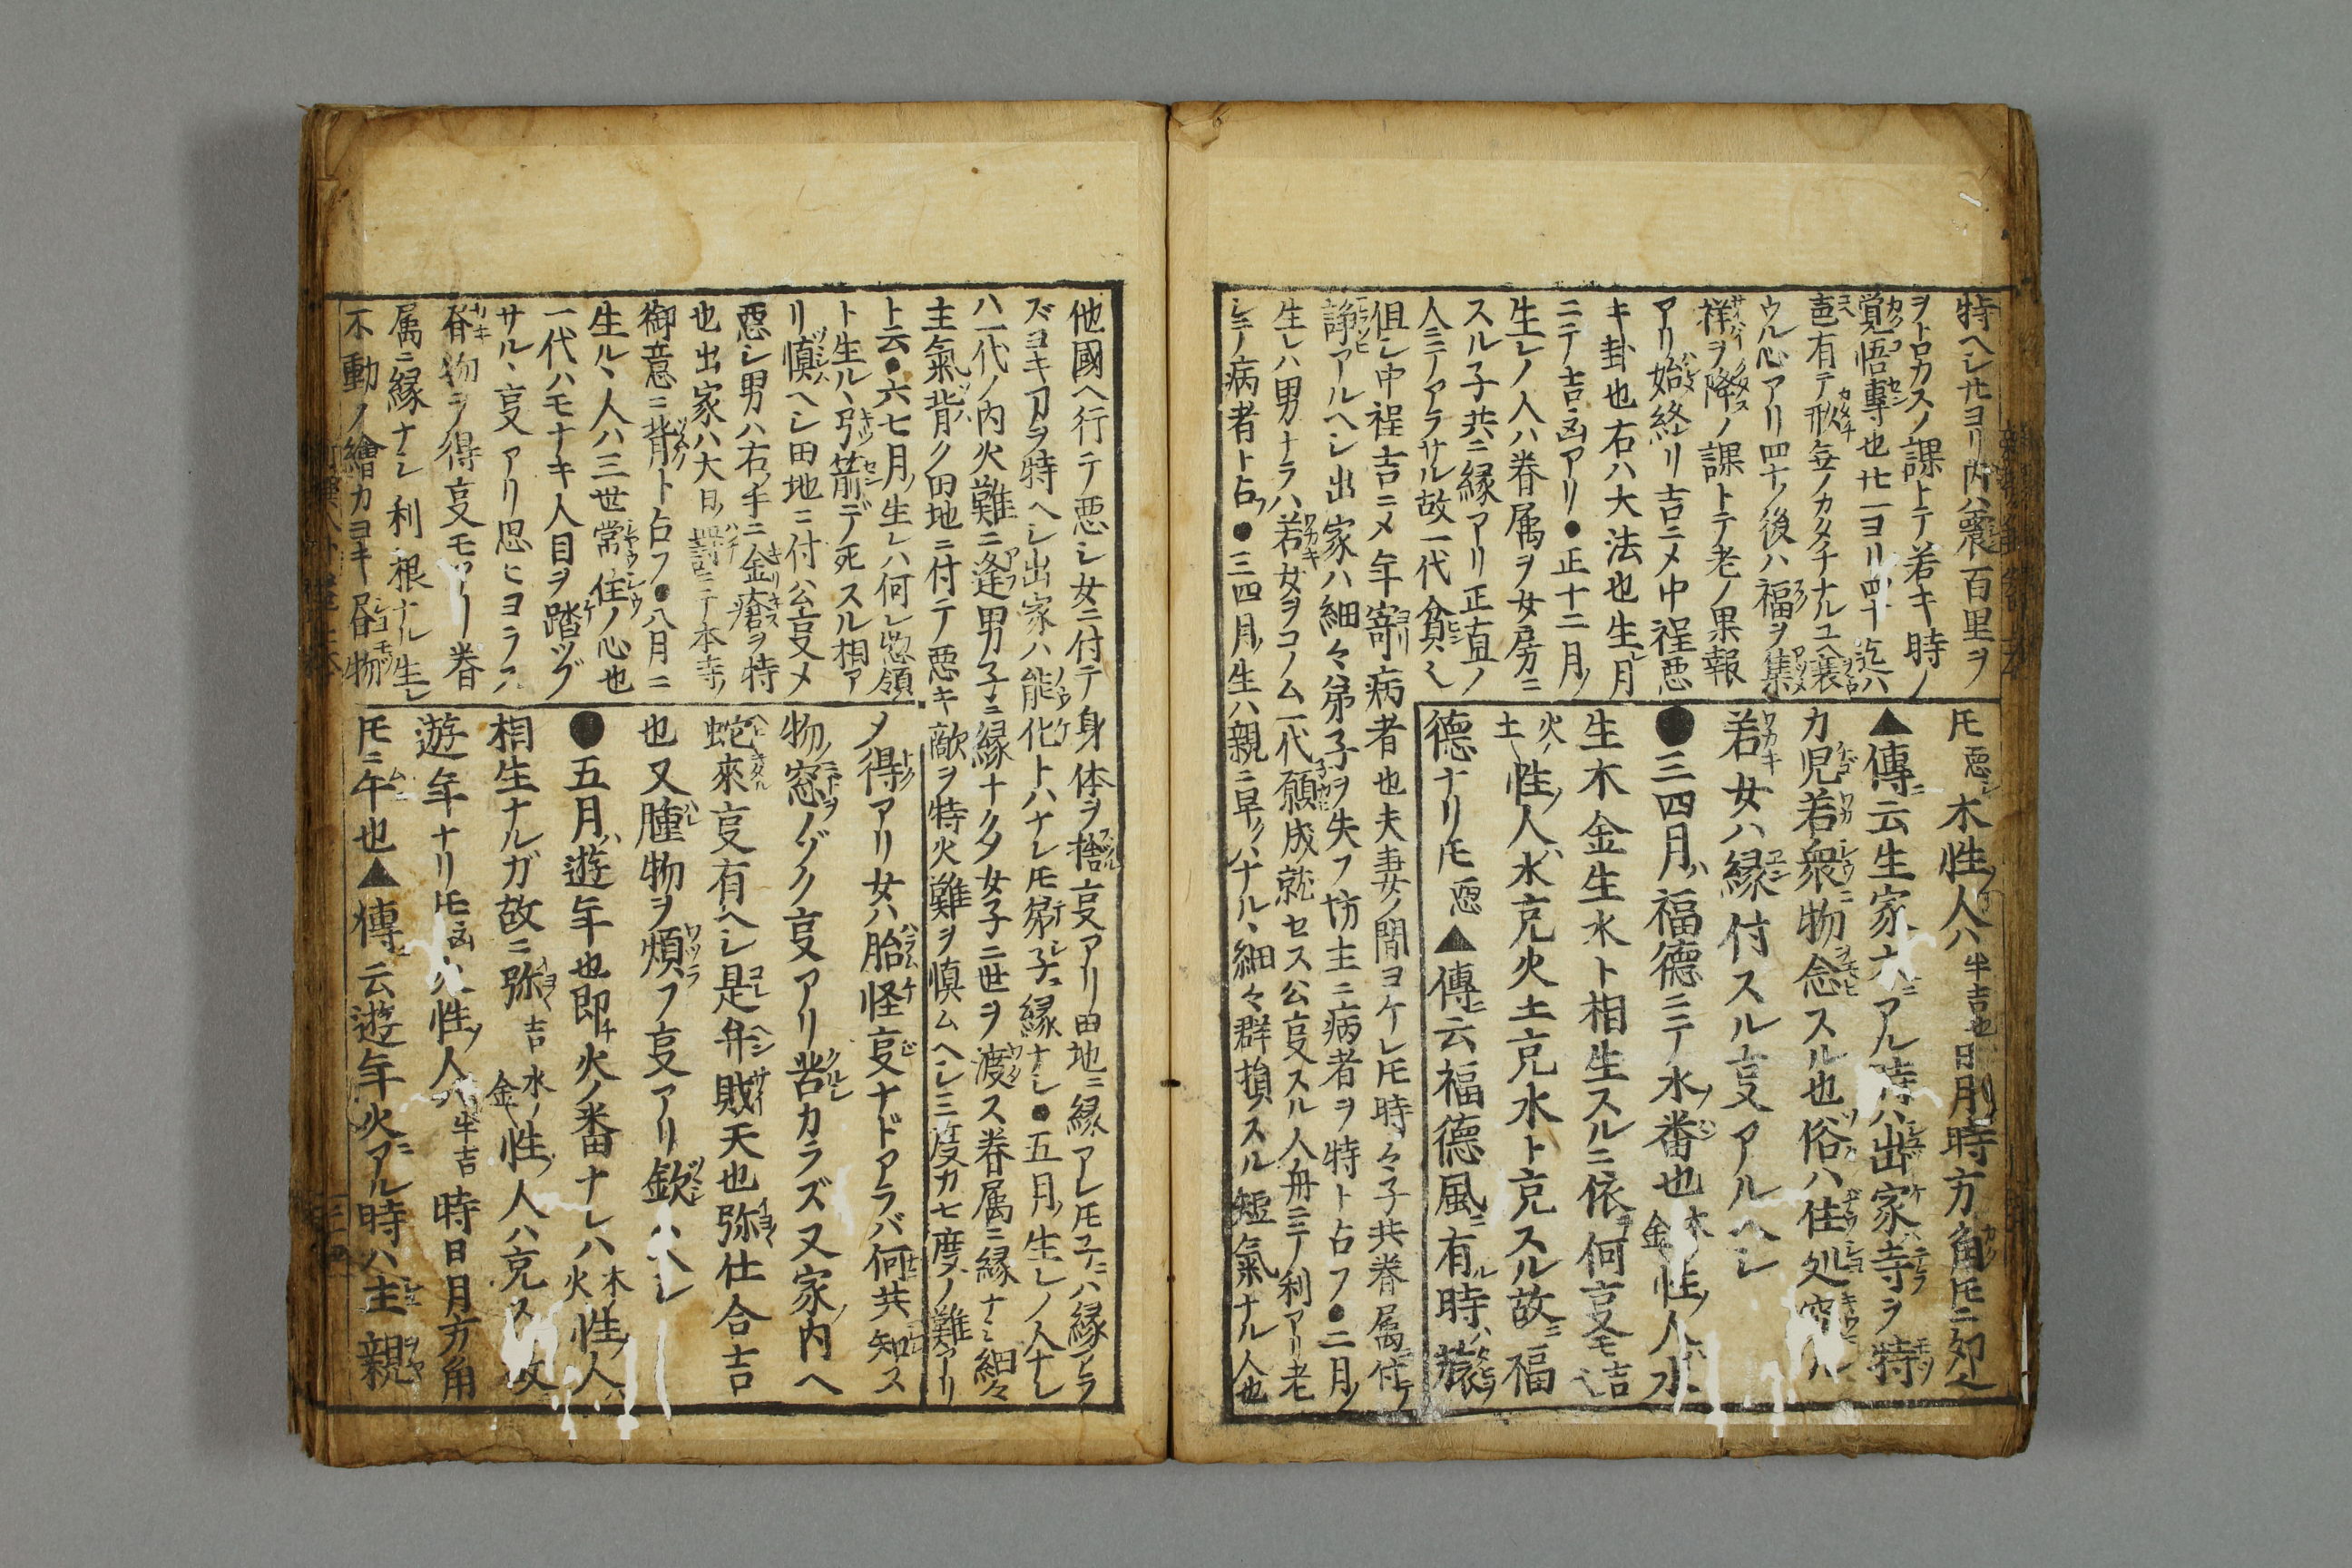 特ヘシ廿ヨリ内ハ震百里ヲ
ヲトロカスノ課トテ若キ時ノ
覚悟專也廿一ヨリ四十迄ハ
有テ形無ノカタチナルユヘ
ウル心アリ四十ノ後ハ福ヲ集
祥ヲ降ノ課トテ老ノ果報
アリ始終リ吉ニメ中程悪
キ卦也右ハ大法也生レ月
ニテ吉凶アリ●正十二月ノ
生レノ人ハ眷属ヲ女房ニ
スル子共ニ縁アリ正直ノ
人ニテアラサル故一代貧シ
但シ中程吉ニメ年寄病者也夫妻ノ間ヨケレ𪜈時々子共眷属付ケ
諍アルヘシ出家ハ細々弟子ヲ失フ坊主ニ病者ヲ特ト占フ●二月ノ
生レハ男ナラハ若女ヲコノム一代願成就セス公事スル人舟ニテ利アリ老
シテ病者ト占フ●三四月ノ生ハ親ニ早クハナル細々群損スル短氣ナル人也
𪜈悪シ木性ノ人ハ半吉也日月時方角𪜈ニ卯也
▲傳ニ云生家ニアル時ハ出家寺ヲ特
カ児若衆ニ物念スル也俗ハ住処
若女ハ縁付スル事アルヘシ
●三四月ハ福徳ニテ水ノ番也木金ノ性ノ人ハ水
生木金生水ト相生スルニ依テ何事モ吉
火ノ土ノ性ノ人ハ水克火土克水ト克スル故ニ福
徳ナリ𪜈悪▲傳ニ云福徳風ニ有ル時ハ
他國ヘ行テ悪シ女ニ付テ身体ヲ捨事アリ田地ニ縁アレ𪜈子ニハ縁アラ
ズヨキ刀ヲ特ヘシ出家ハ能化トハナレ𪜈弟子ニ縁ナシ●五月ノ生レノ人ナレ
ハ一代ノ内火難ニ逢男子ニ縁ナク女子ニ世ヲ渡ス眷属ニ縁ナシ細々
主氣背ク田地ニ付テ悪キ敵ヲ特火難ヲ慎ムヘシ三度カ七度ノ難アリ
ト云●六七月ノ生レハ何レ惣領
ト生ル弓箭デ死スル相ア
リ慎ヘシ田地ニ付公事メ
悪シ男ハ右ノ手ニ金瘡ヲ特
也出家ハ大日ノ罰ニテ本寺ノ
御意ニ背ト占フ●八月ニ
生ル人ハ三世常住ノ心也
一代ハモナキ人目ヲ踏ツブ
サル事アリ思ヒヨラス
物ヲ得事モアリ眷
属ニ縁ナシ利根ナル生レ
不動ノ繪カヨキ物
メ得アリ女ハ胎怪事ナドアラバ何共知ス
物窓ノゾク事アリ苦カラズ又家内ヘ
蛇來事有ヘシ是弁財天也弥仕合吉
也又腫物ヲ煩フ事アリ欽ヘシ
●五月ハ遊年也即チ火ノ番ナレハ木火性ノ人ハ
相生ナルガ故ニ弥吉水ノ金ノ性ノ人ハ克ス故
遊年ナリ𪜈凶土性ノ人ハ半吉時日月方角
𪜈ニ午也▲傳ニ云遊年火ニアル時ハ主親